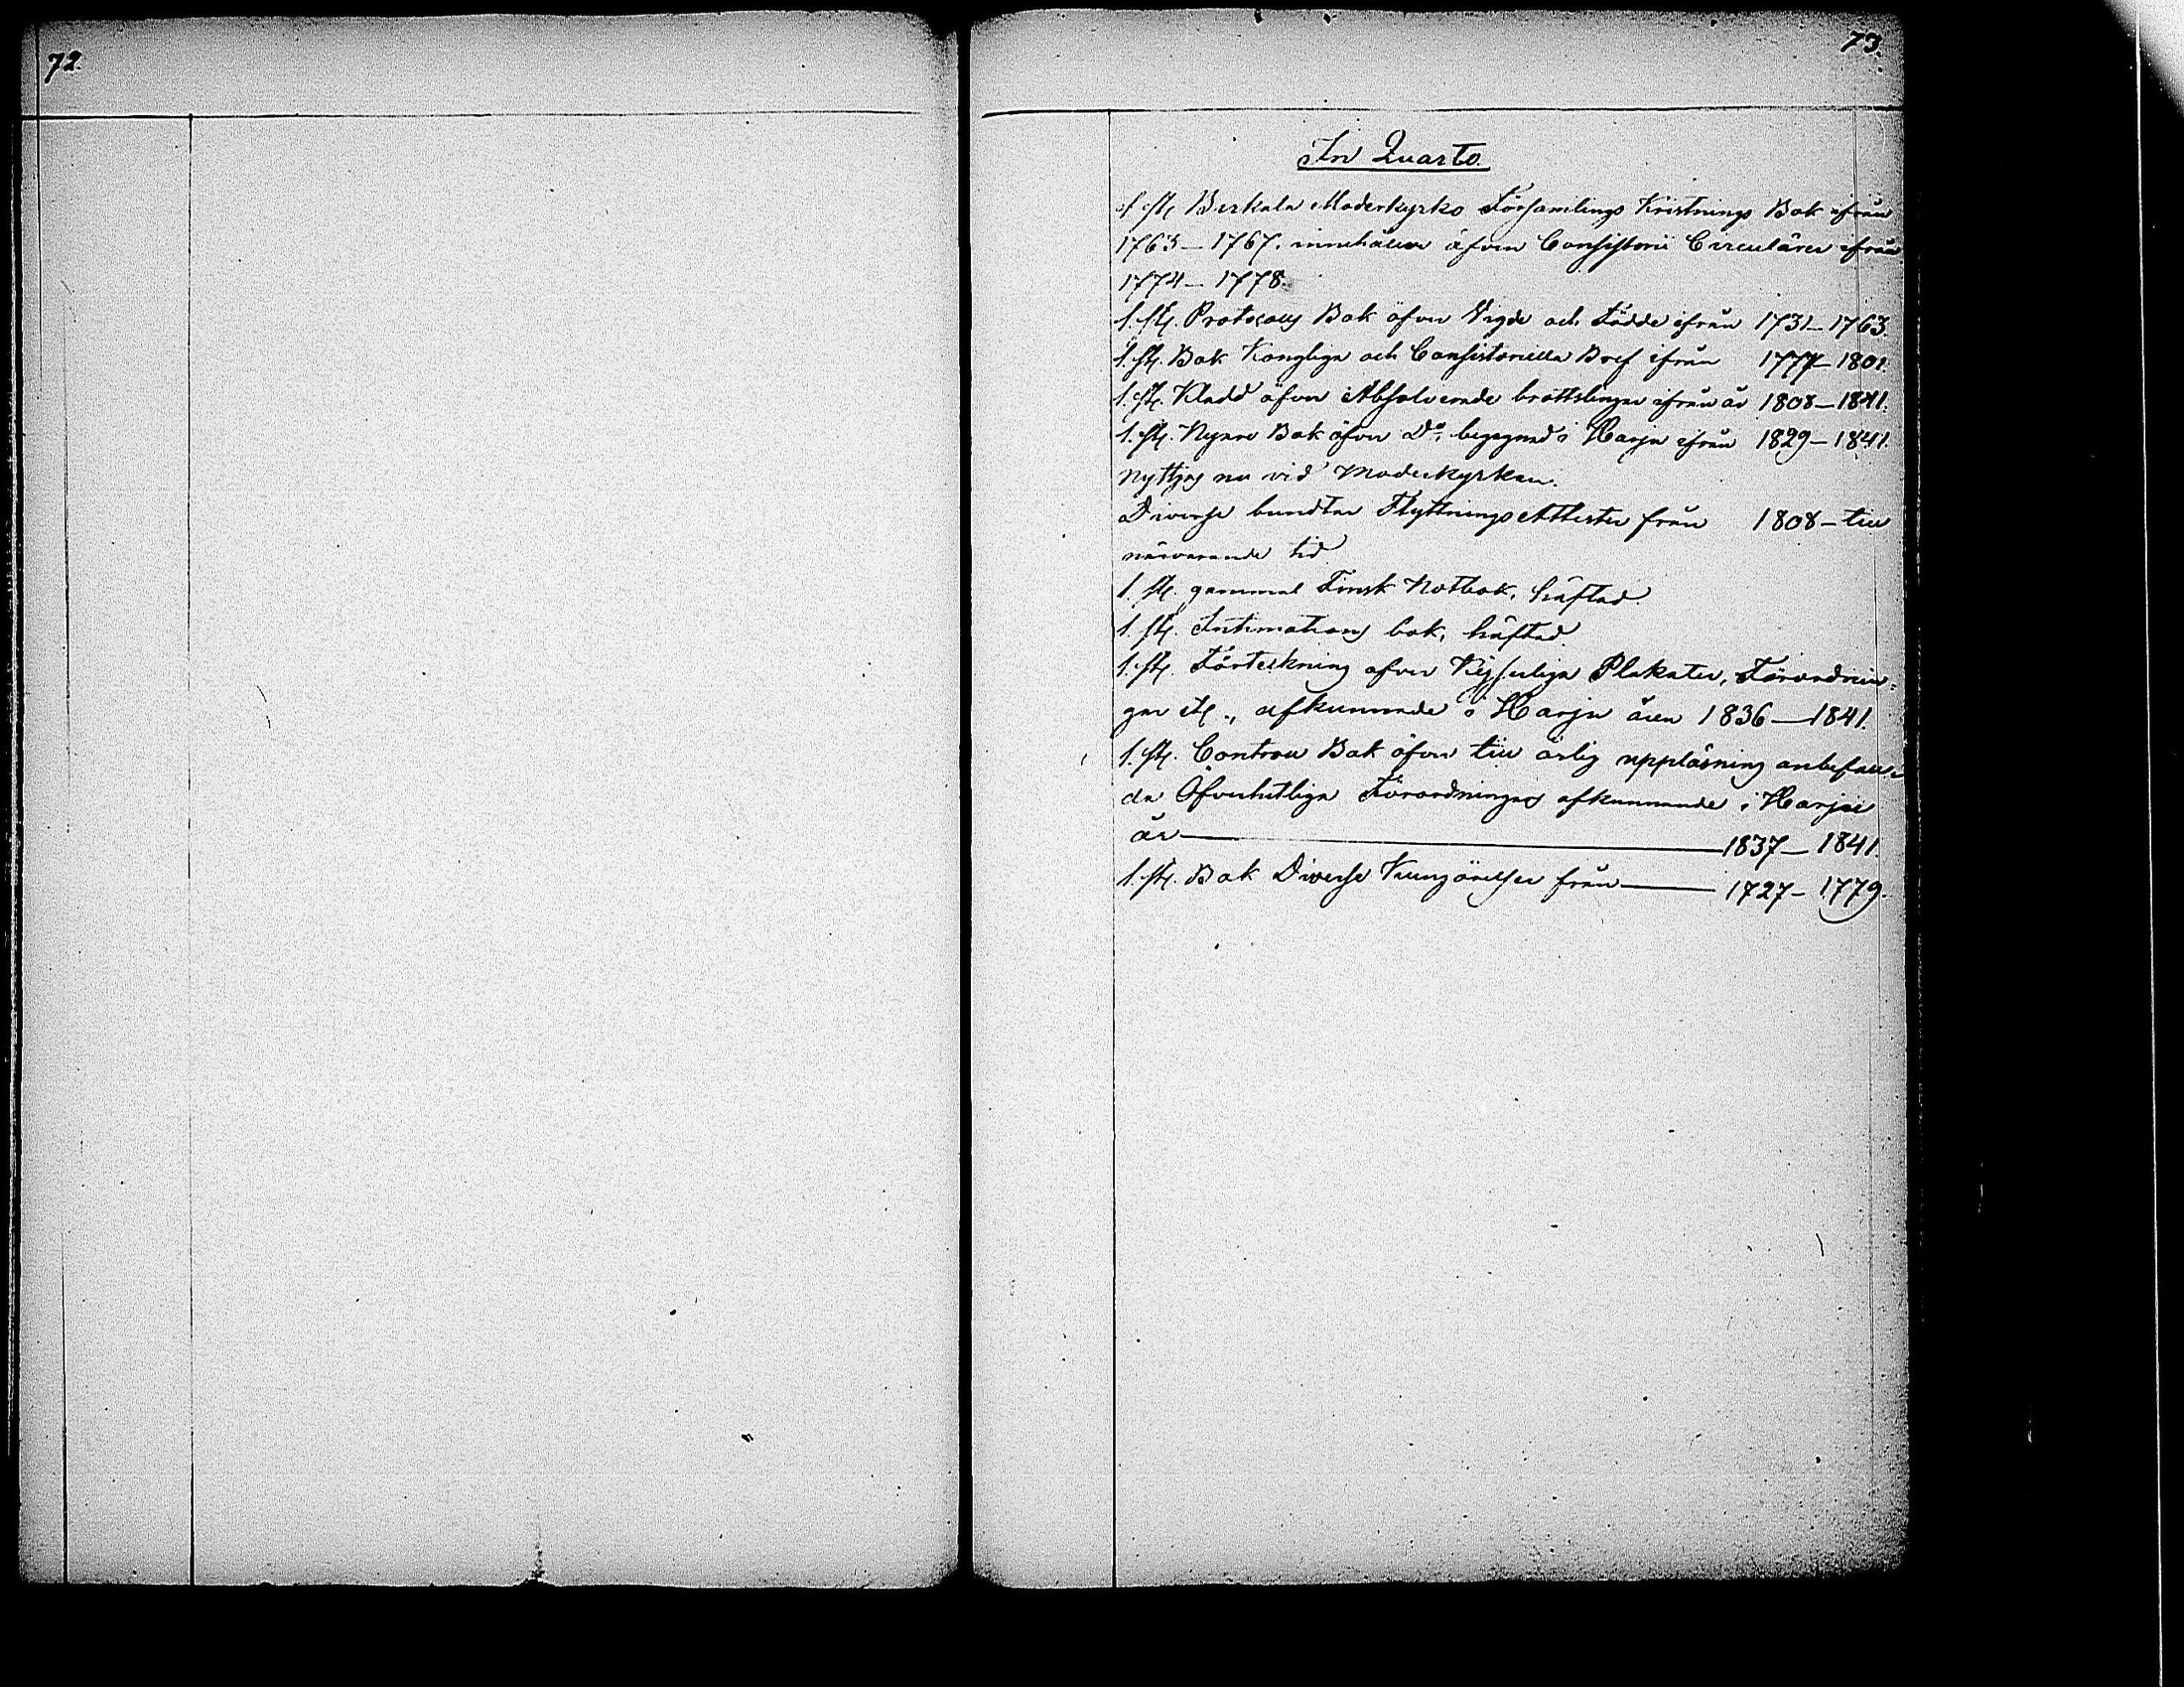 72.
73.
In Quarto.
1 st. Birkala Moderkyrko Församlings Kristnings Bok ifrån
1763–1767. innehåller äfven Consistorii Circulärer ifrån
1774–1778.
1. st. Protocolls Bok öfver Vigde och Födde ifrån 1731–1763.
1. st. Bok Kongliga och Consistoriella Bref ifrån 1777–1801.
1. st. Kladd öfver Absolverade brottslingar ifrån år 1808–1841.
1. st. Nyare Bok öfver Do, begagnad i Harju ifrån 1829–1841.
Nyttjas nu vid Moderkyrkan.
Diverse bundtar Flyttnings Attester från 1808–till
närvarande tid
1. st. gammal Finsk Notbok, häftad.
1. st. Intimations bok, häftad
1. st. Förteckning öfver Kejserliga Plakater, Förordnin=
gar etc., afkunnade i Harju åren 1836–1841.
1. st. Controll Bok öfver till årlig uppläsning anbefall=
da Öfverhetliga Förordningars afkunnande i Harju
år 1837–1841.
1. st. Bok Diverse Kungörelser från 1727–1779.